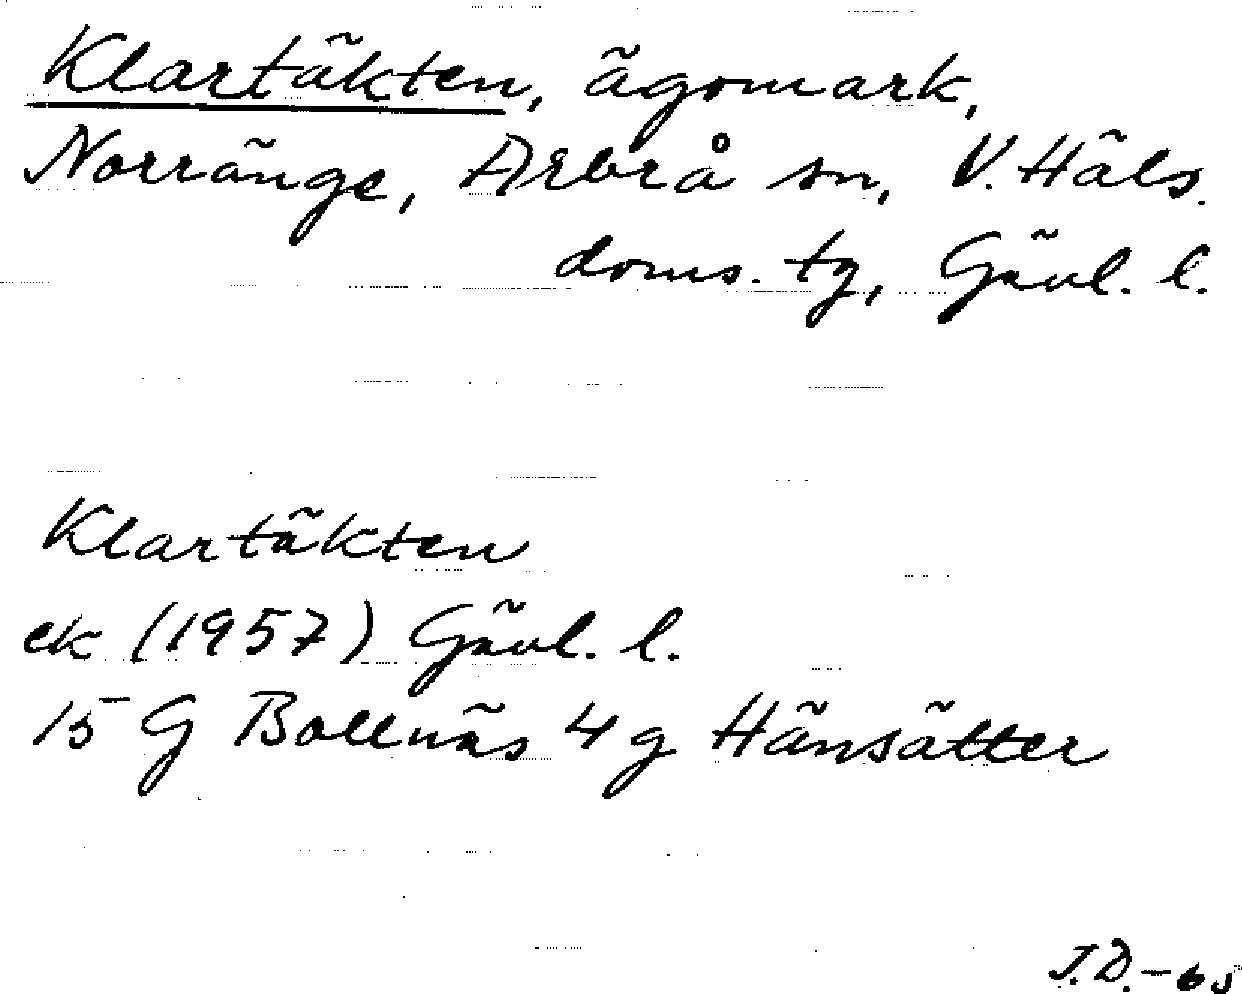 Klartäkten, ägomark,
Norränge, Arbrå sn, V. Häls.
doms. tg, Gävl. l.
Klartäkten
ek (1957) Gävl. l.
15 G Bollnäs 4 g Hänsätter
J.D. -65